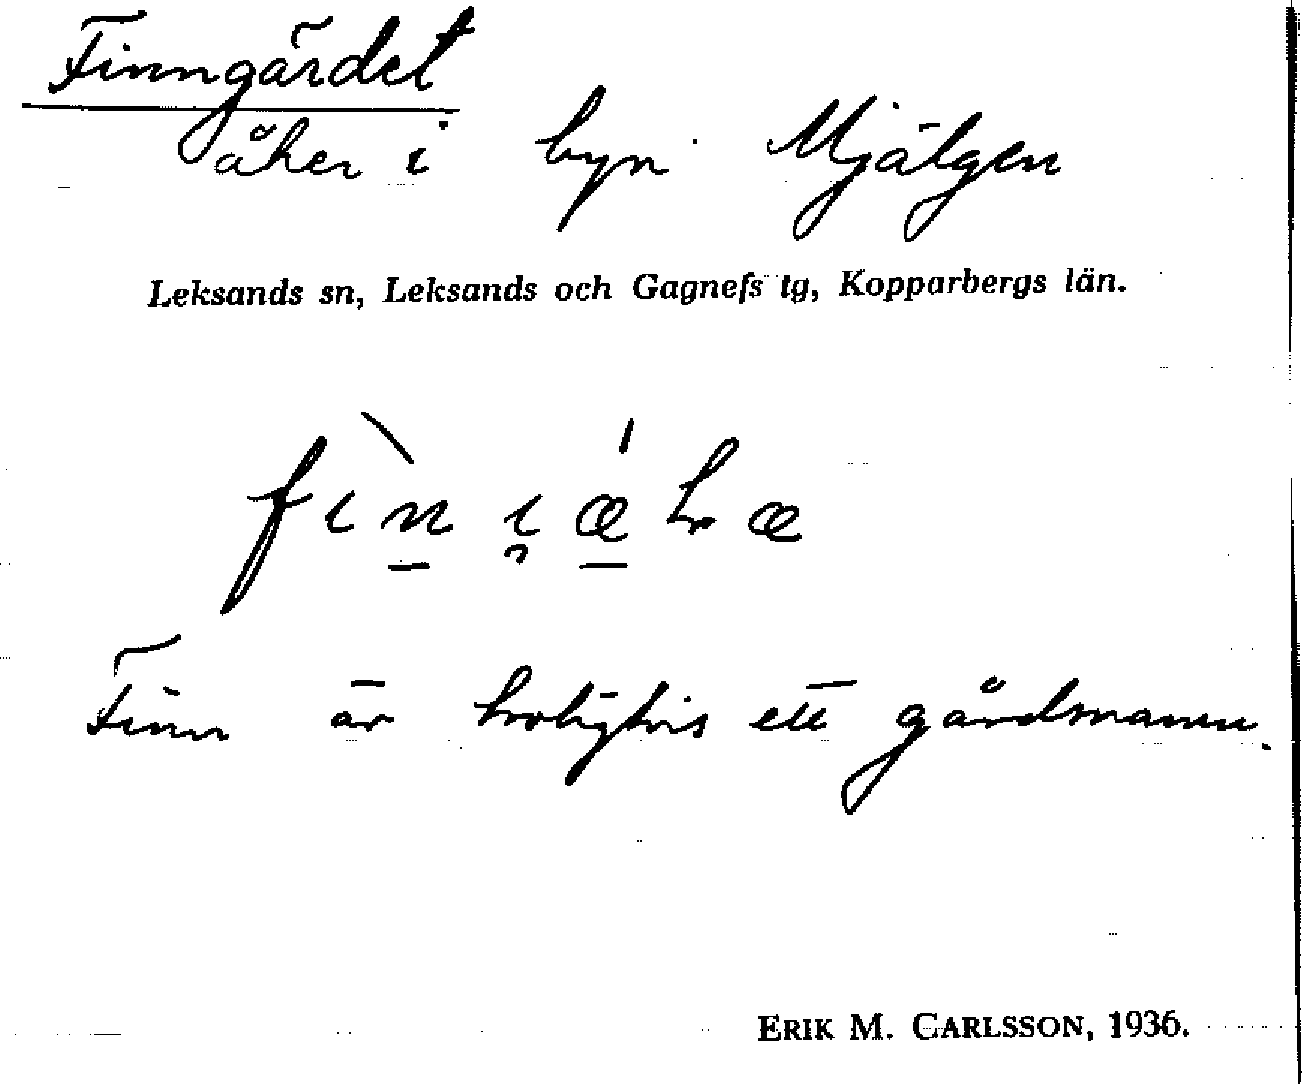 Finngärdet
åker i byn Mjälgen
Leksands sn, Leksands och Gagnefs tg, Kopparbergs län.
Finn är troligtvis ett gårdsnamn.
ERIK M. CARLSSON, 1936.